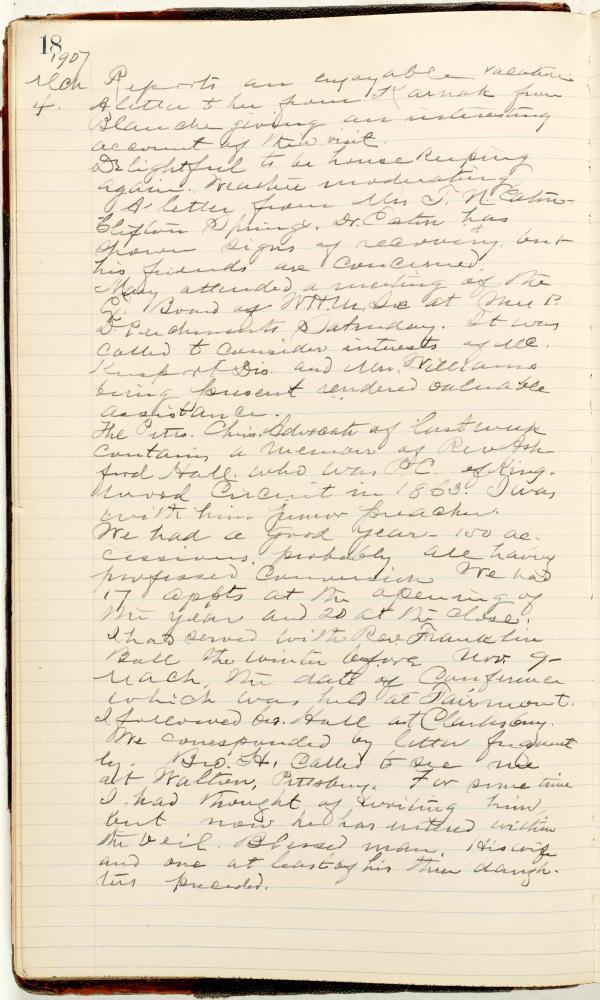 18
1907
Mch Reports an enjoyable vacation
4. A letter to her from Karnak from
Blanche giving an interesting
account of their visit.
Delightful to be housekeeping
again. Weather moderating.
A letter from Mrs T. N. Eaton-
Clifton Springs. Dr. Eaton has
shown signs of recovery, but
his friends are concerned.
Mary attended a meeting of the
Ex. Board of W.H.M. Soc at Mrs P.
D. Saturday. It was
called to consider interests of Mc.
Keesport Dis. and Mrs. Williams
being present rendered valuable
assistance.
The Pitts. Chris. Advocate of last week
contains a memoir of Rev Ash
ford Hall, who was P.C. of King-
wood Circuit in 1863. I was
with him junior preacher.
We had a good year- 150 ac-
cessions, probably all having
professed conversion We had
17 appts at the opening of
the year and 20 at the close.
I had served with Rev. Franklin
Ball the winter before Nov. 9-
Mach, the date of Conference
which was held at Fairmont.
I followed Hall at Clarksburg.
We corresponded by letter frequent
ly. Bro. H. called to see me
at Walton, Pittsburg. For some time
I had thought of writing him,
but now he has entered within
the veil. Blessed man. His wife
and one at least of his three daugh-
ters preceded.